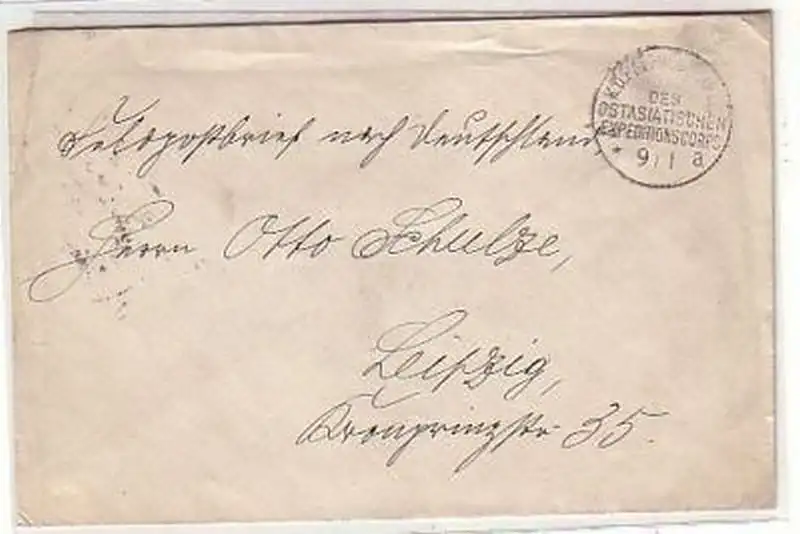 DES
OSTASIATISCHEN
EXPEDITIONSCORPS
* 9/1 a
Feldpostbrief nach Deutschland,
Herrn Otto Schulze,
Leipzig,
Kronprinzstr 35.